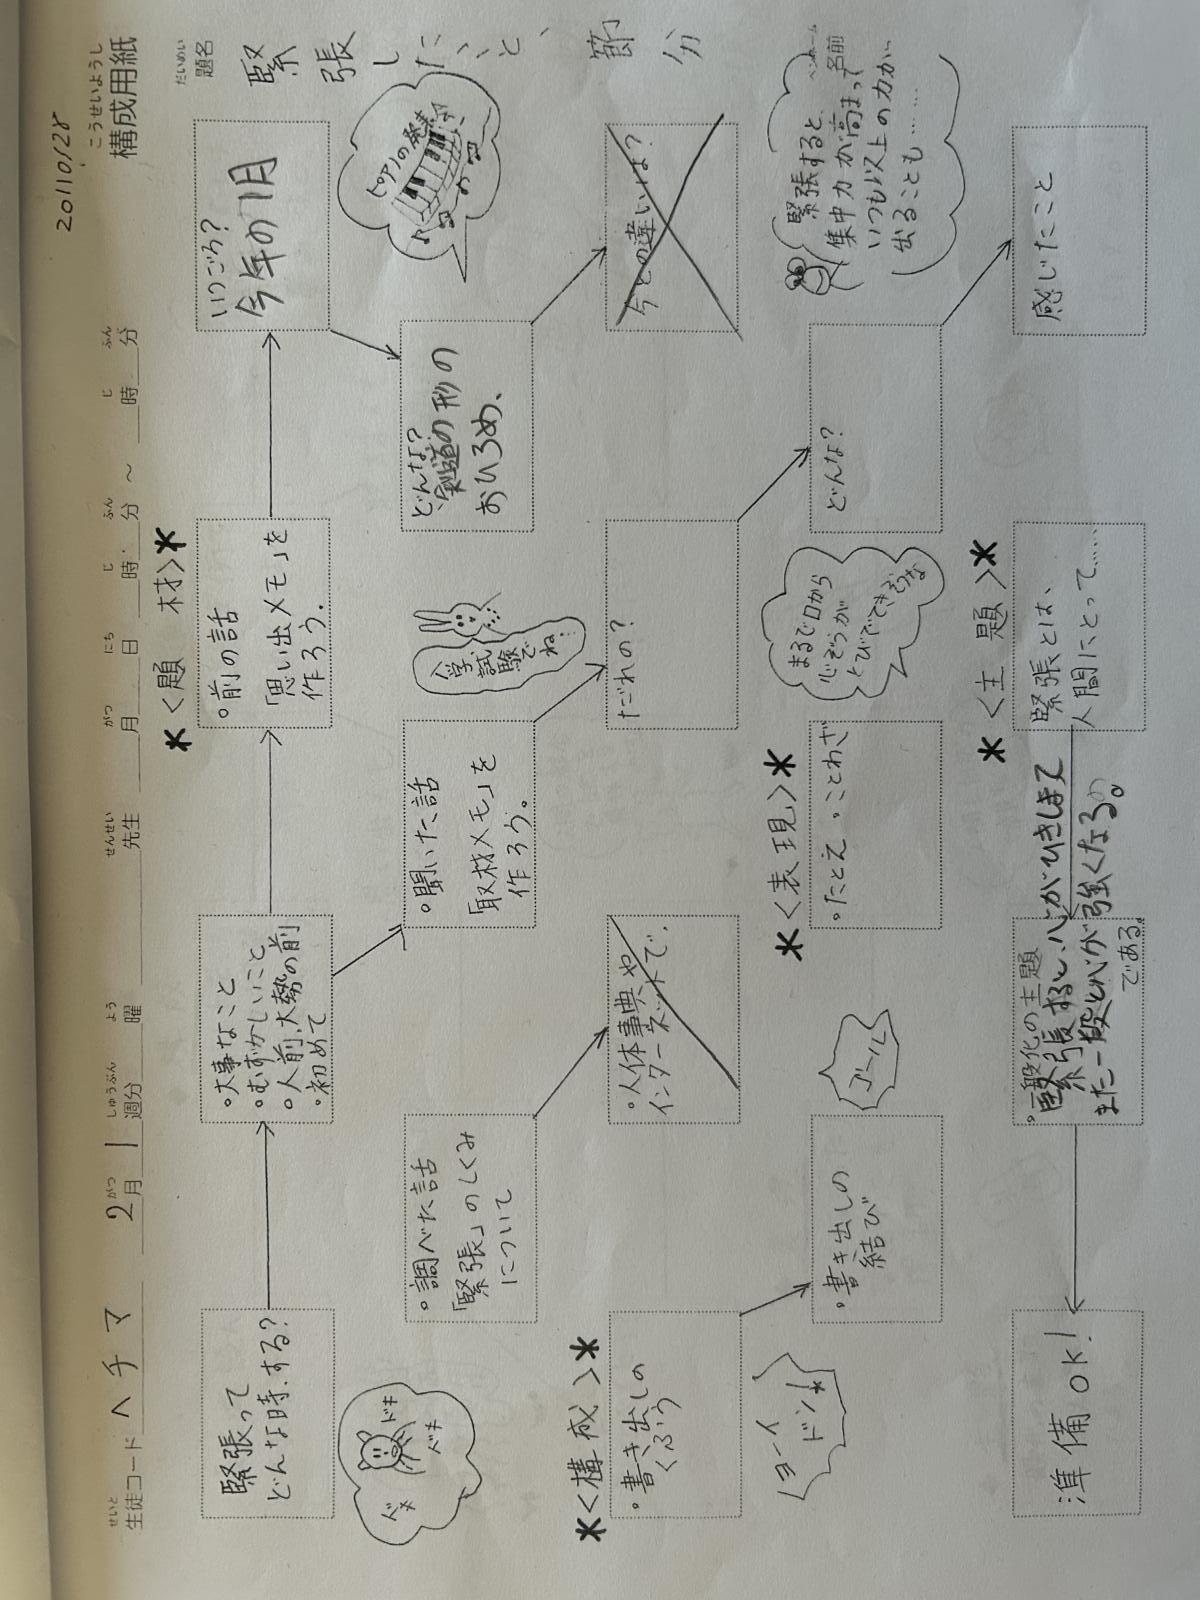 20110128
こうせいようし
構成用紙
せいと
生徒コード ヘチマ 2月1週分 曜 先生 月 日 時 分 ～ 時 分
がつ しゅうぶん よう せんせい がつ にち じ ふん じ ふん
だいめい
題名
緊張したこと、節分
ペンネーム
名前
緊張って
どんな時.する?
ドキ
ドキ
・大事なこと
・むずかしいこと
・人前、大勢の前
・初めて
*<題材>*
・前の話
「思い出メモ」を
作ろう.
いつごろ?
今年の1月
ピアノの発表
どんな?
剣道の形の
おひろめ、
今との違いは?
・聞いた話
「取材メモ」を
作ろう。
入学
試験
でね…
だれの?
どんな?
・調べた話
「緊張」のしくみ
について
・人体事典や
インターネットで.
*<構成>*
・書き出しの
くふう
ヨーイ
ドン!
・書き出しの
結び
ゴール
*<表現>*
・たとえ・ことわざ
まるで口から
心ぞうが
とびでてきそうな
緊張すると、
集中力が高まって
いつも以上の力が…
出ることも……
*<主題>*
感じたこと
緊張とは、
人間にとって……
・一般化の主題
緊張すると、心がひきしまって
また一段と心が強くなるの。
である
準備OK!